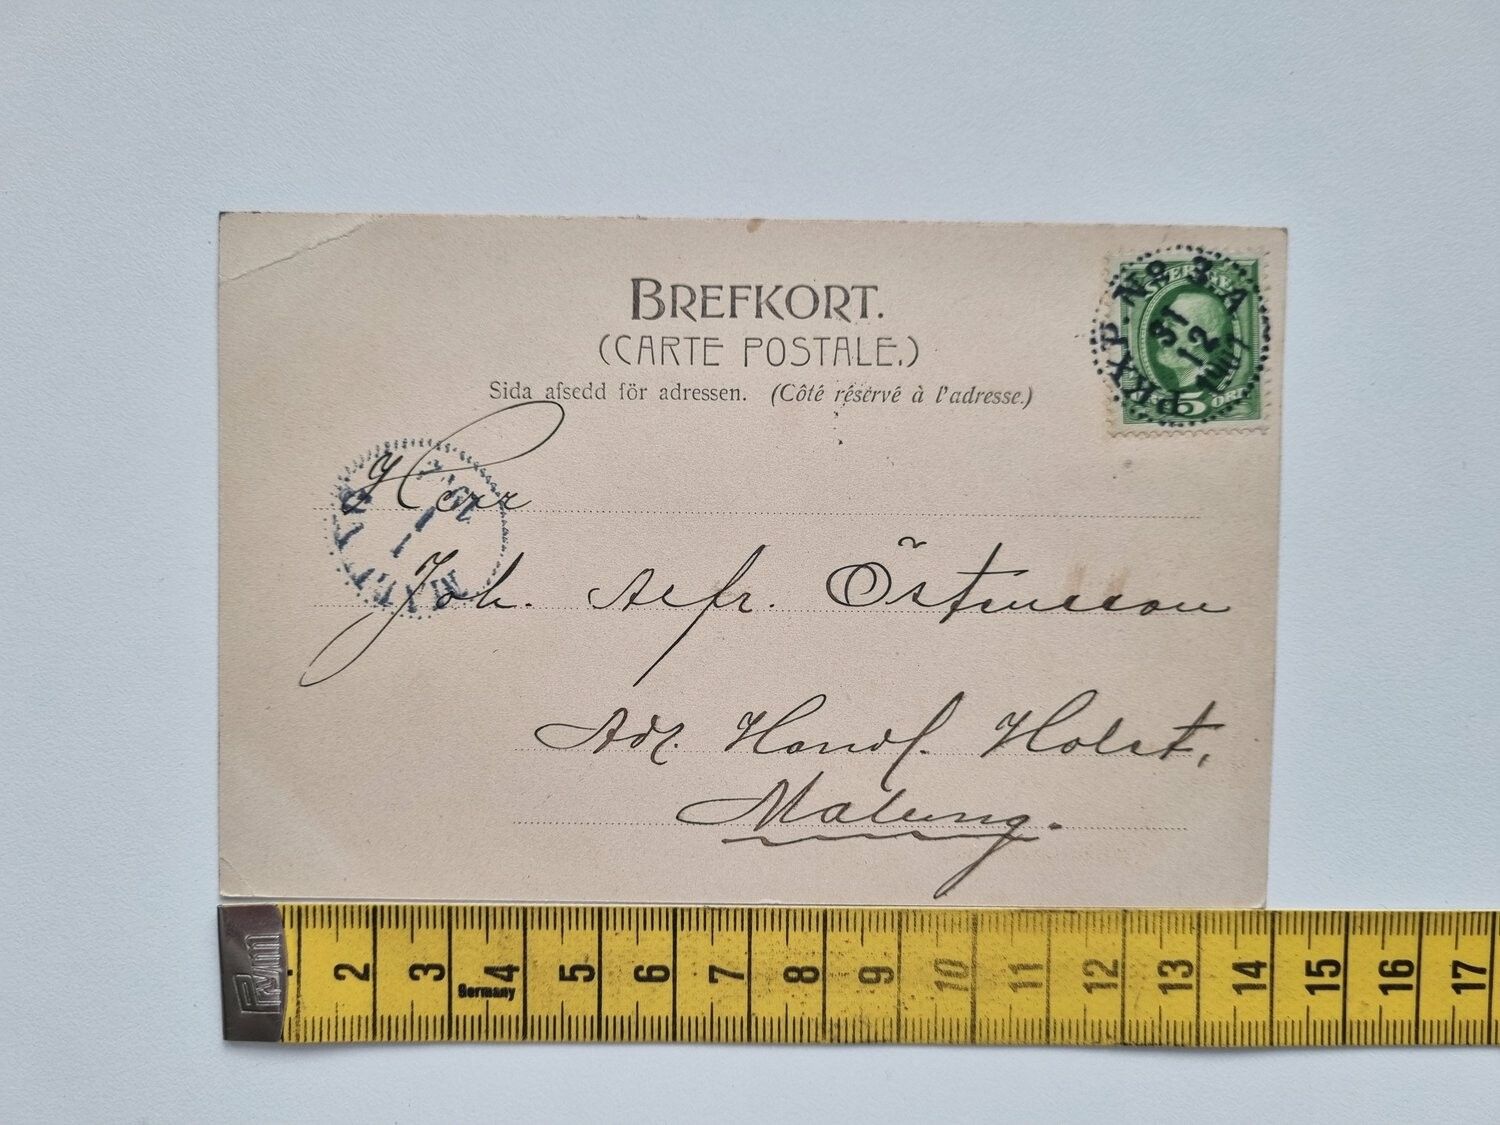 BREFKORT.
(CARTE POSTALE.)
Sida afsedd för adressen. (Côté réservé à l'adresse.)
PKXP. No 3 A
31
12
SVERIGE
5 ÖRE
Herr
Joh. Alfr. Östmusson
Adr. Handl. Holst,
Malung.
Germany
2 3 4 5 6 7 8 9 10 11 12 13 14 15 16 17